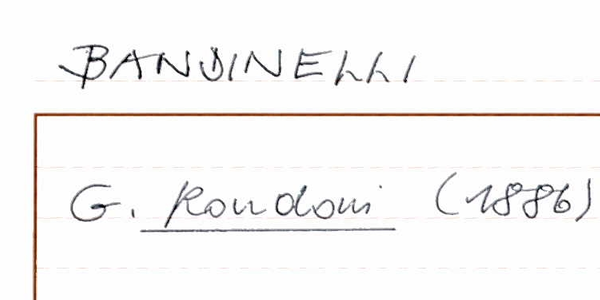 BANDINELLI
G. Rondoni (1886)